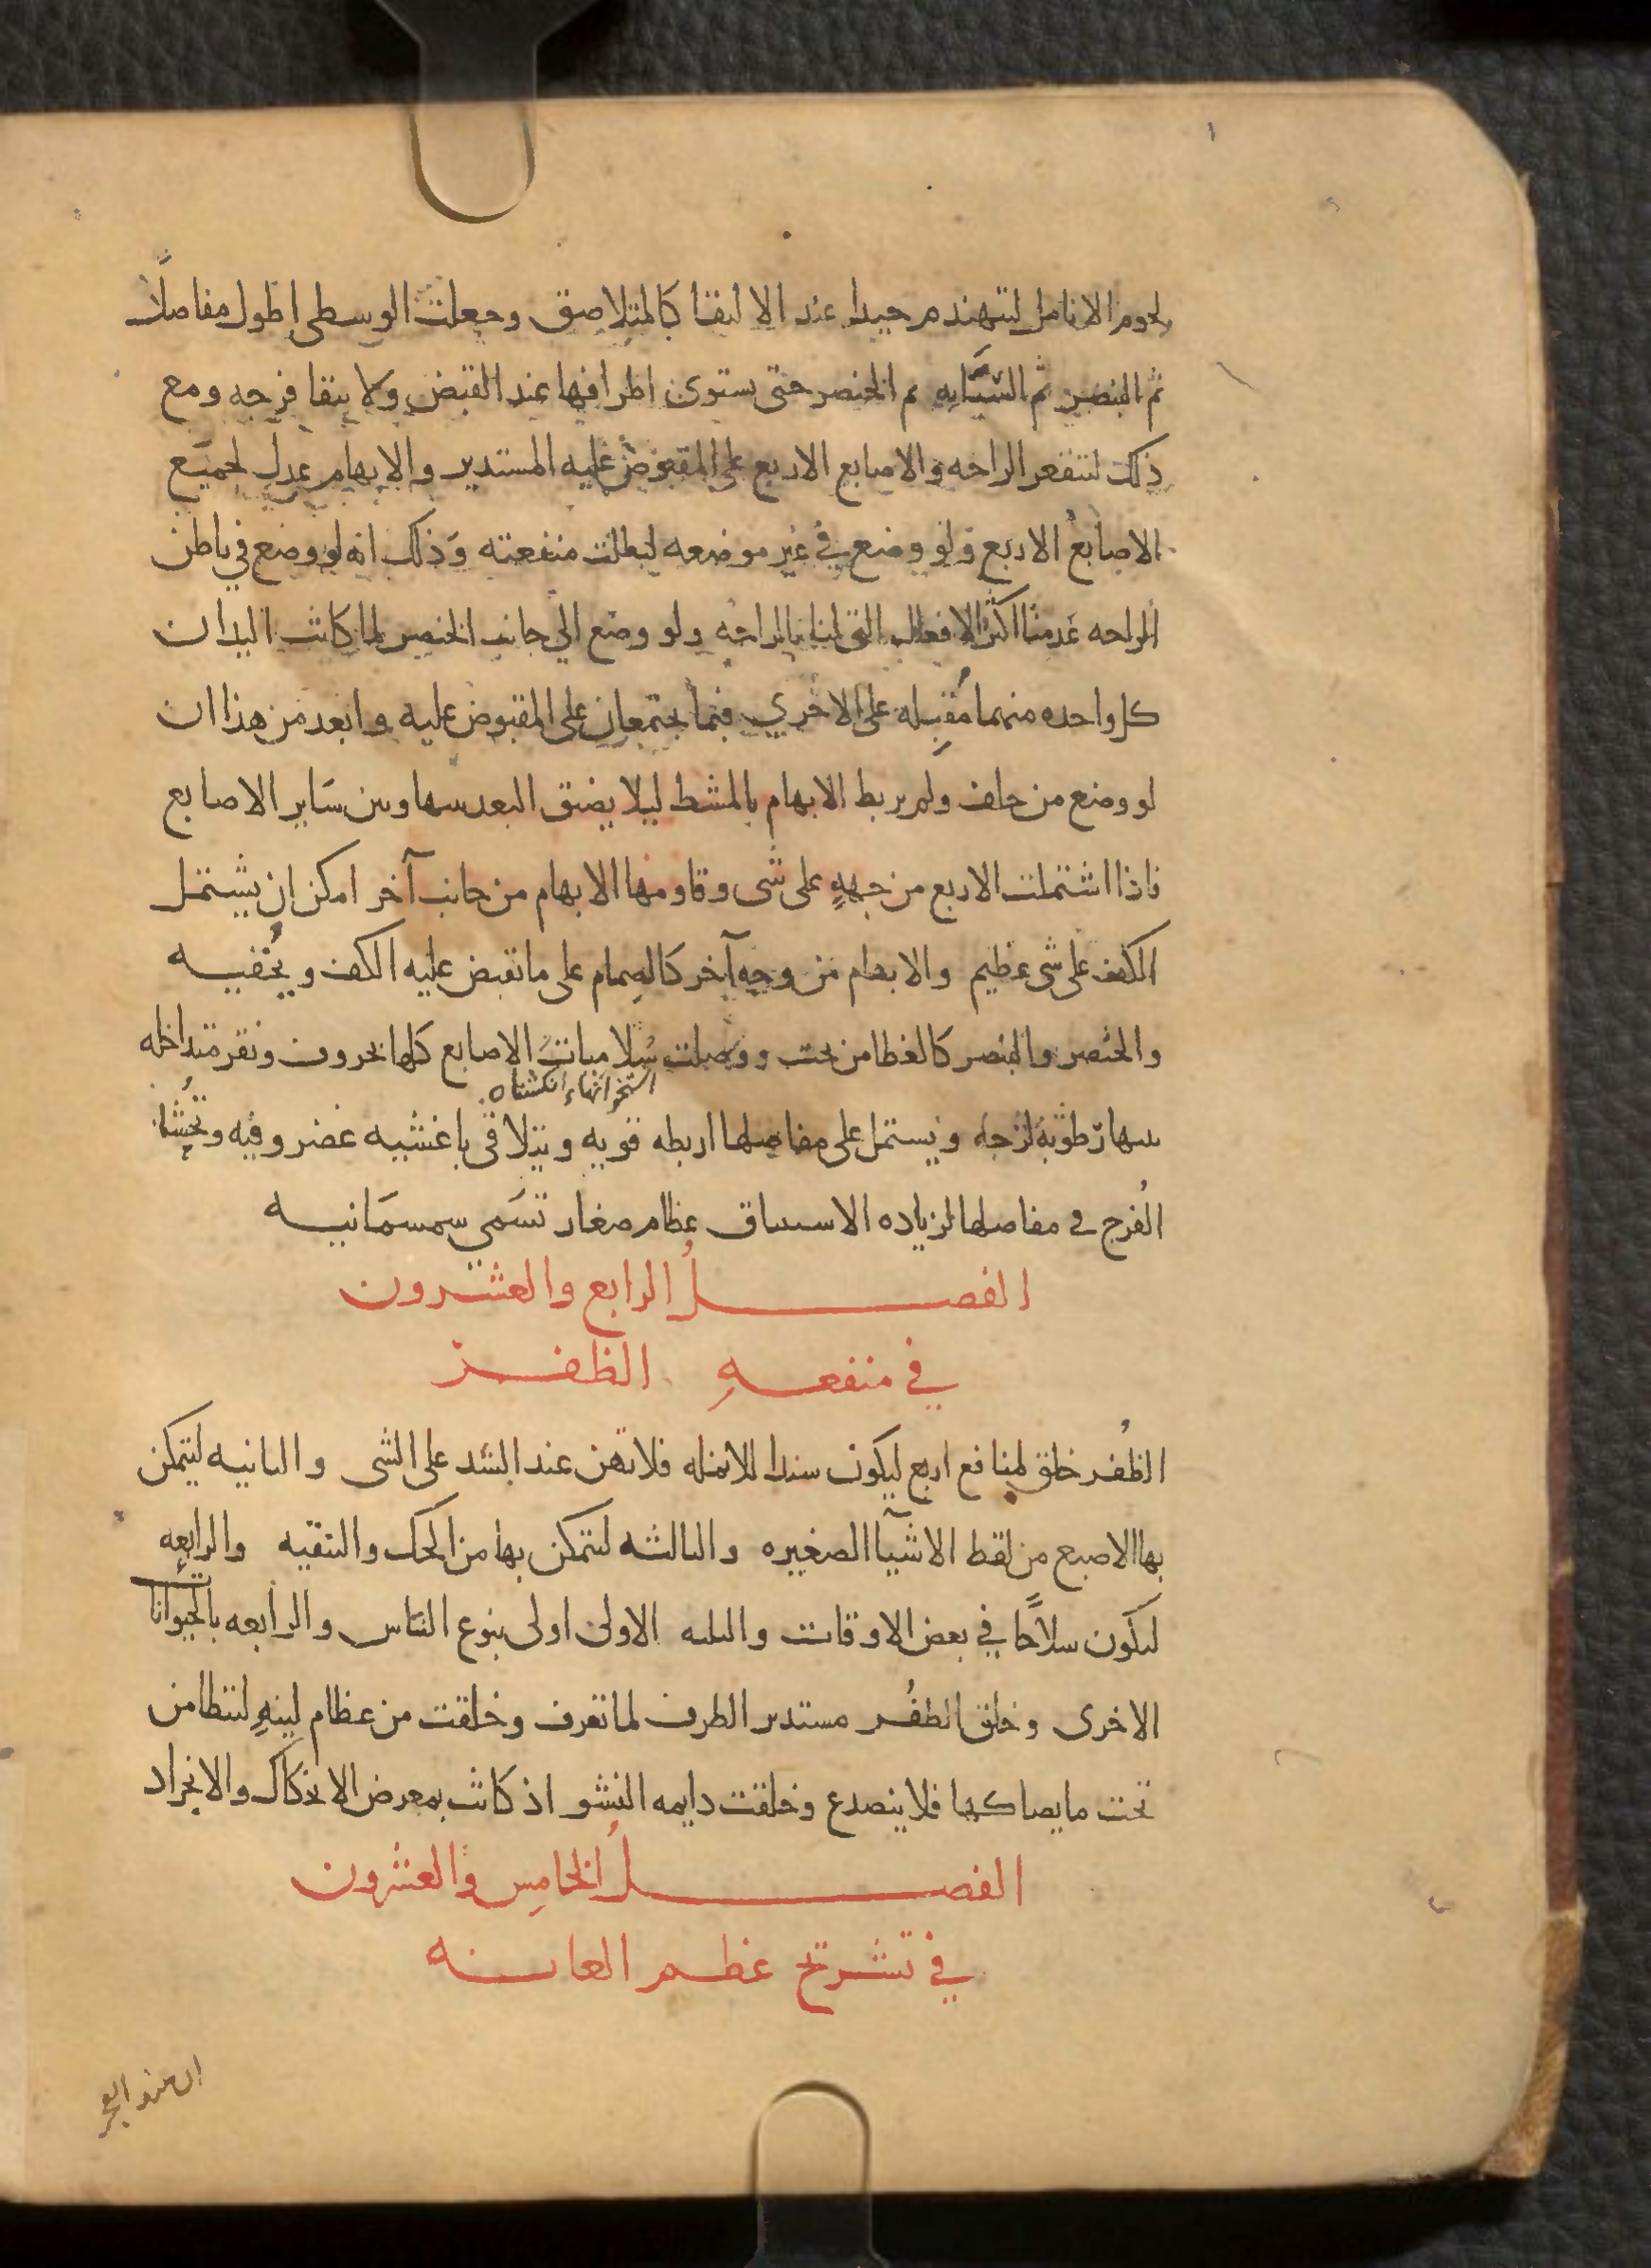 لحوم الانامل لتتهندم جيدا عند الالتقا كالمتلاصق وجعلت الوسطى اطول مفاصلًا
ثم البنصر ثم السبّابه ثم الخنصر حتى يستوى اطرافها عند القبض ولا يبقا فرجه ومع
ذلك لتتقعر الراحه والاصابع الاربع على المقبوض عليه المستدير والابهام عدل لجميع
الاصابع الاربع ولو وضع في غير موضعه لبطلت منفعته وذلك انه لو وضع في باطن
الراحه عدمنا اكثر الافعال التي لنا بالراحه ولو وضع الي جانب الخنصر لما كانت اليدان
كل واحده منهما مُقبِله على الاخري فيما يجتمعان على المقبوض عليه وابعد من هذا ان
لو وضع من خلف ولم يربط الابهام بالمشط ليلا يضيق البعد بينها وبين سَاير الاصابع
فاذا اشتملت الاربع من جهةٍ على شى وقاومها الابهام من جانب آخر امكن ان يشتمل
الكف على شى عظيم والابهام من وجه آخر كالصمام على ما تقبض عليه الكف ويُخفيه
والخنصر والبنصر كالغطا من تحت ووصلت سُلاميات الاصابع كلها بحروف ونقر متداخله
استخوانهاء انكشتان
بينها رطوبة لزجه ويشتمل على مفاصلها اربطه قويه ويتلاقى باغشيه غضروفيه وتُحشا
الفُرج في مفاصلها لزياده الاستيثاق عظام صغار تسَمى سمسمَانيه
الفصلُ الرابع والعشرون
في منفعهِ الظفر
الظُفر خلق لمنافع اربع ليكون سندا للانمله فلا تهن عند الشد على الشى والثانيه ليتمكن
بها الاصبع من لقط الاشيآ الصغيره والثالثه ليتمكن بها من الحك والتنقيه والرابعه
ليكون سلاحًا في بعض الاوقات والثلثه الاولى اولى بنوع الناس والرابعه بالحيوانات
الاخرى وخلق الظفُر مستدير الطرف لما تعرف وخلقت من عظام لينهٍ لتتطامن
تحت ما يصاكها فلا ينصدع وخلقت دايمه النشو اذ كانت بمعرض الانحكاك والانجراد
الفصلُ الخامِس والعشرون
في تشريح عظم العانه